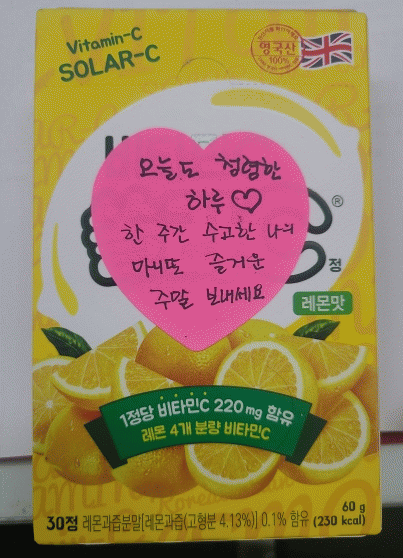 Vitamin-C
SOLAR-C
영국산
100%
오늘도 청렴한
하루♡
한 주간 수고한 나의
마니또 즐거운
주말 보내세요
®
정
레몬맛
1정당 비타민C 220mg 함유
레몬 4개 분량 비타민C
60g
30정 레몬과즙분말[레몬과즙(고형분 4.13%)] 0.1% 함유 (230 kcal)